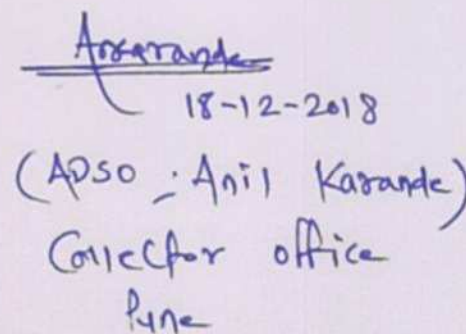 Askarande
18-12-2018
(ADSO : Anil Karande)
Collector office
Pune